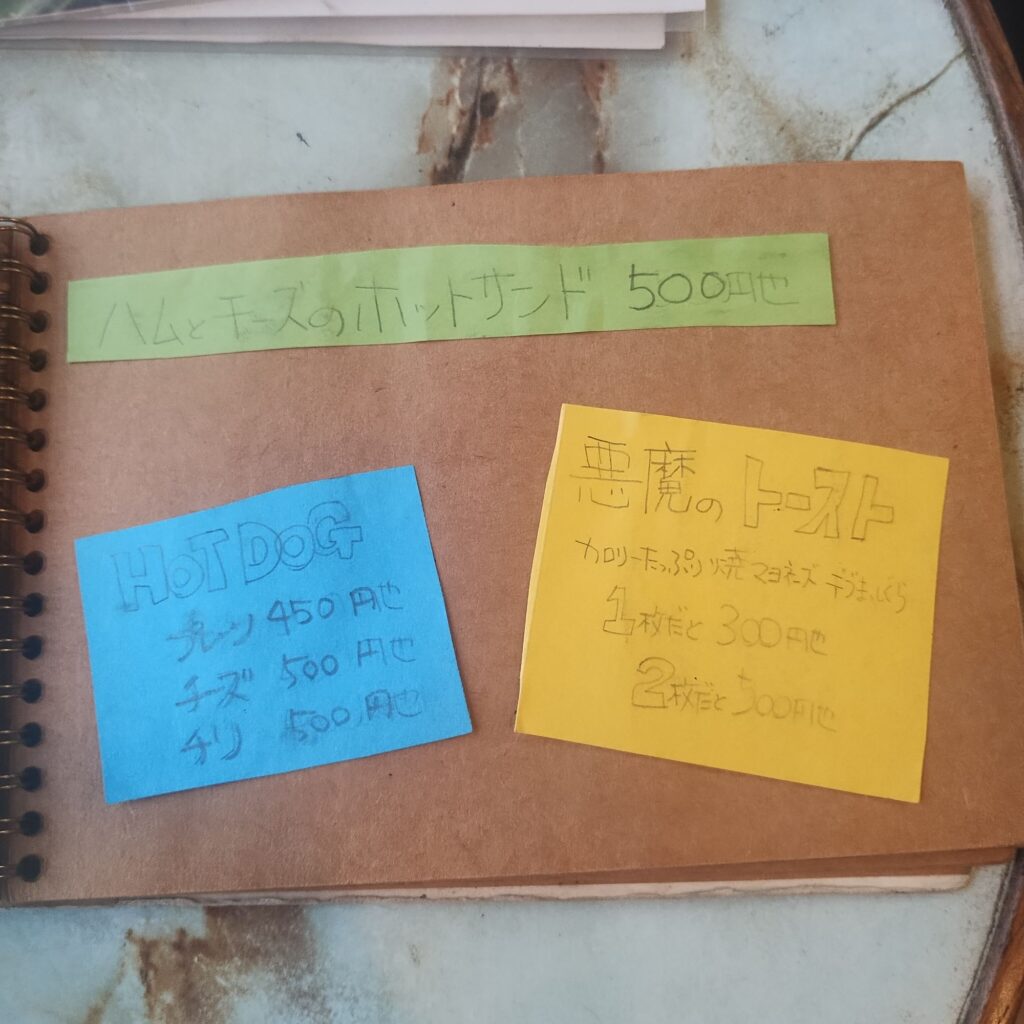 ハムとチーズのホットサンド 500円也
HOT DOG
プレーン 450円也
チーズ 500円也
チリ 500円也
悪魔のトースト
カロリーたっぷり焼マヨネーズ
1枚だと 300円也
2枚だと 500円也